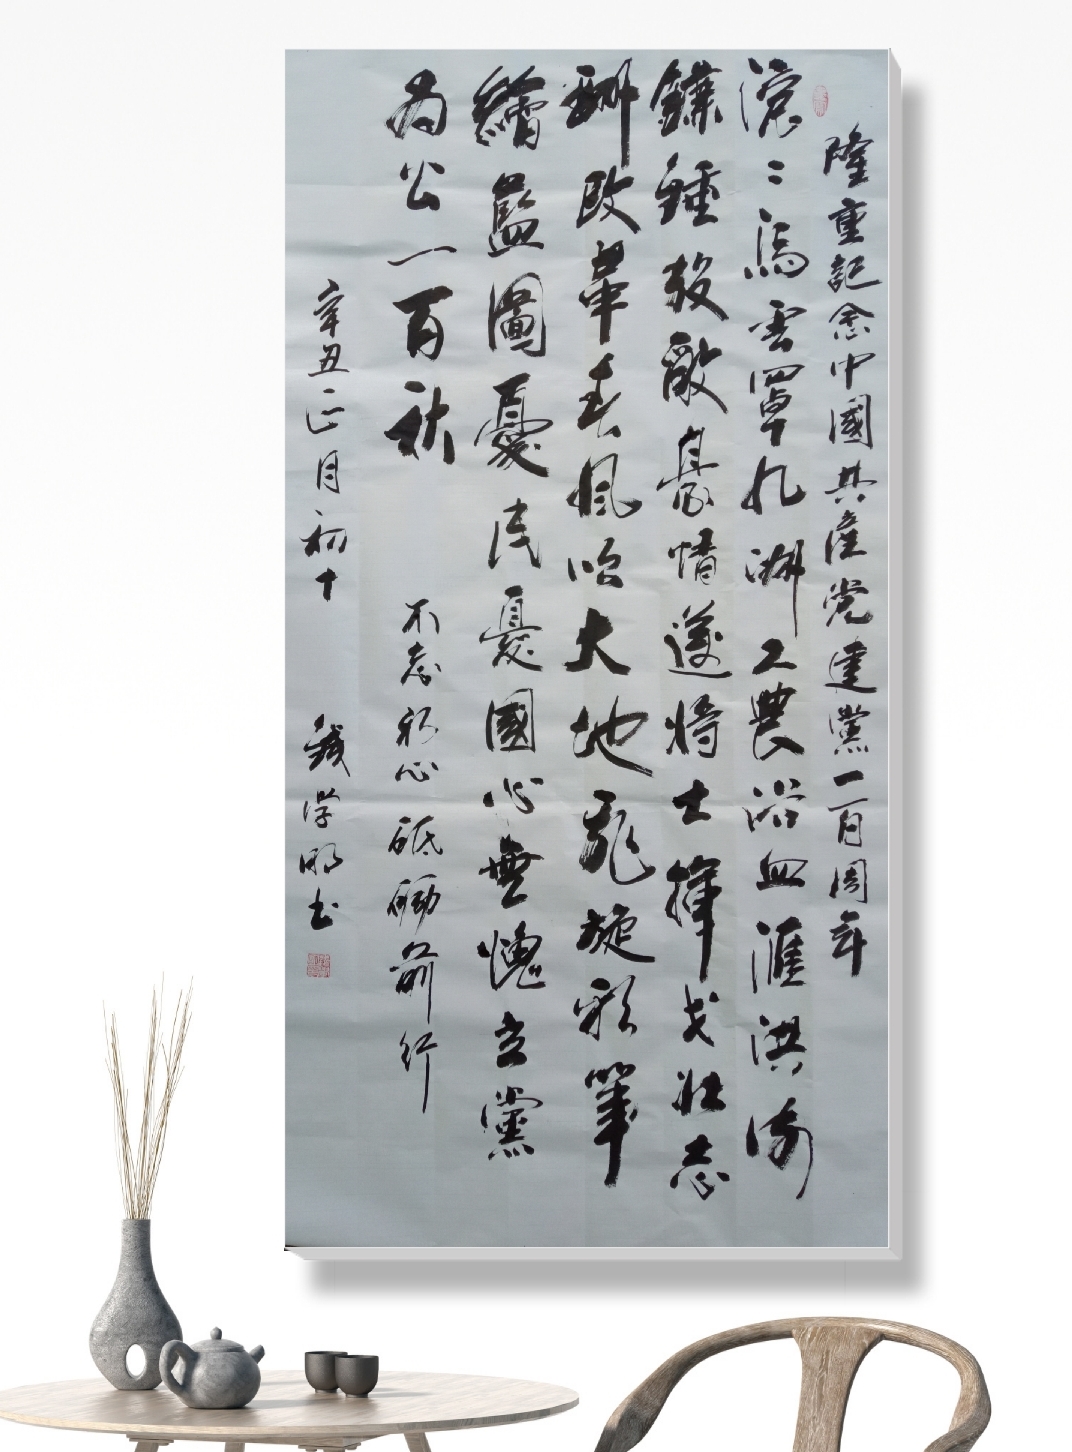 隆重記念中國共産党建黨一百周年
滚〻烏雲罩九洲工農浴血匯洪流
鐮錘殺敵豪情遂將士揮戈壮志
酬改革春風吹大地龍旋彩筆
繪藍圖憂民憂國心無愧立黨
为公一百秋
不忘初心砥礪前行
辛丑正月初十
錢学明书